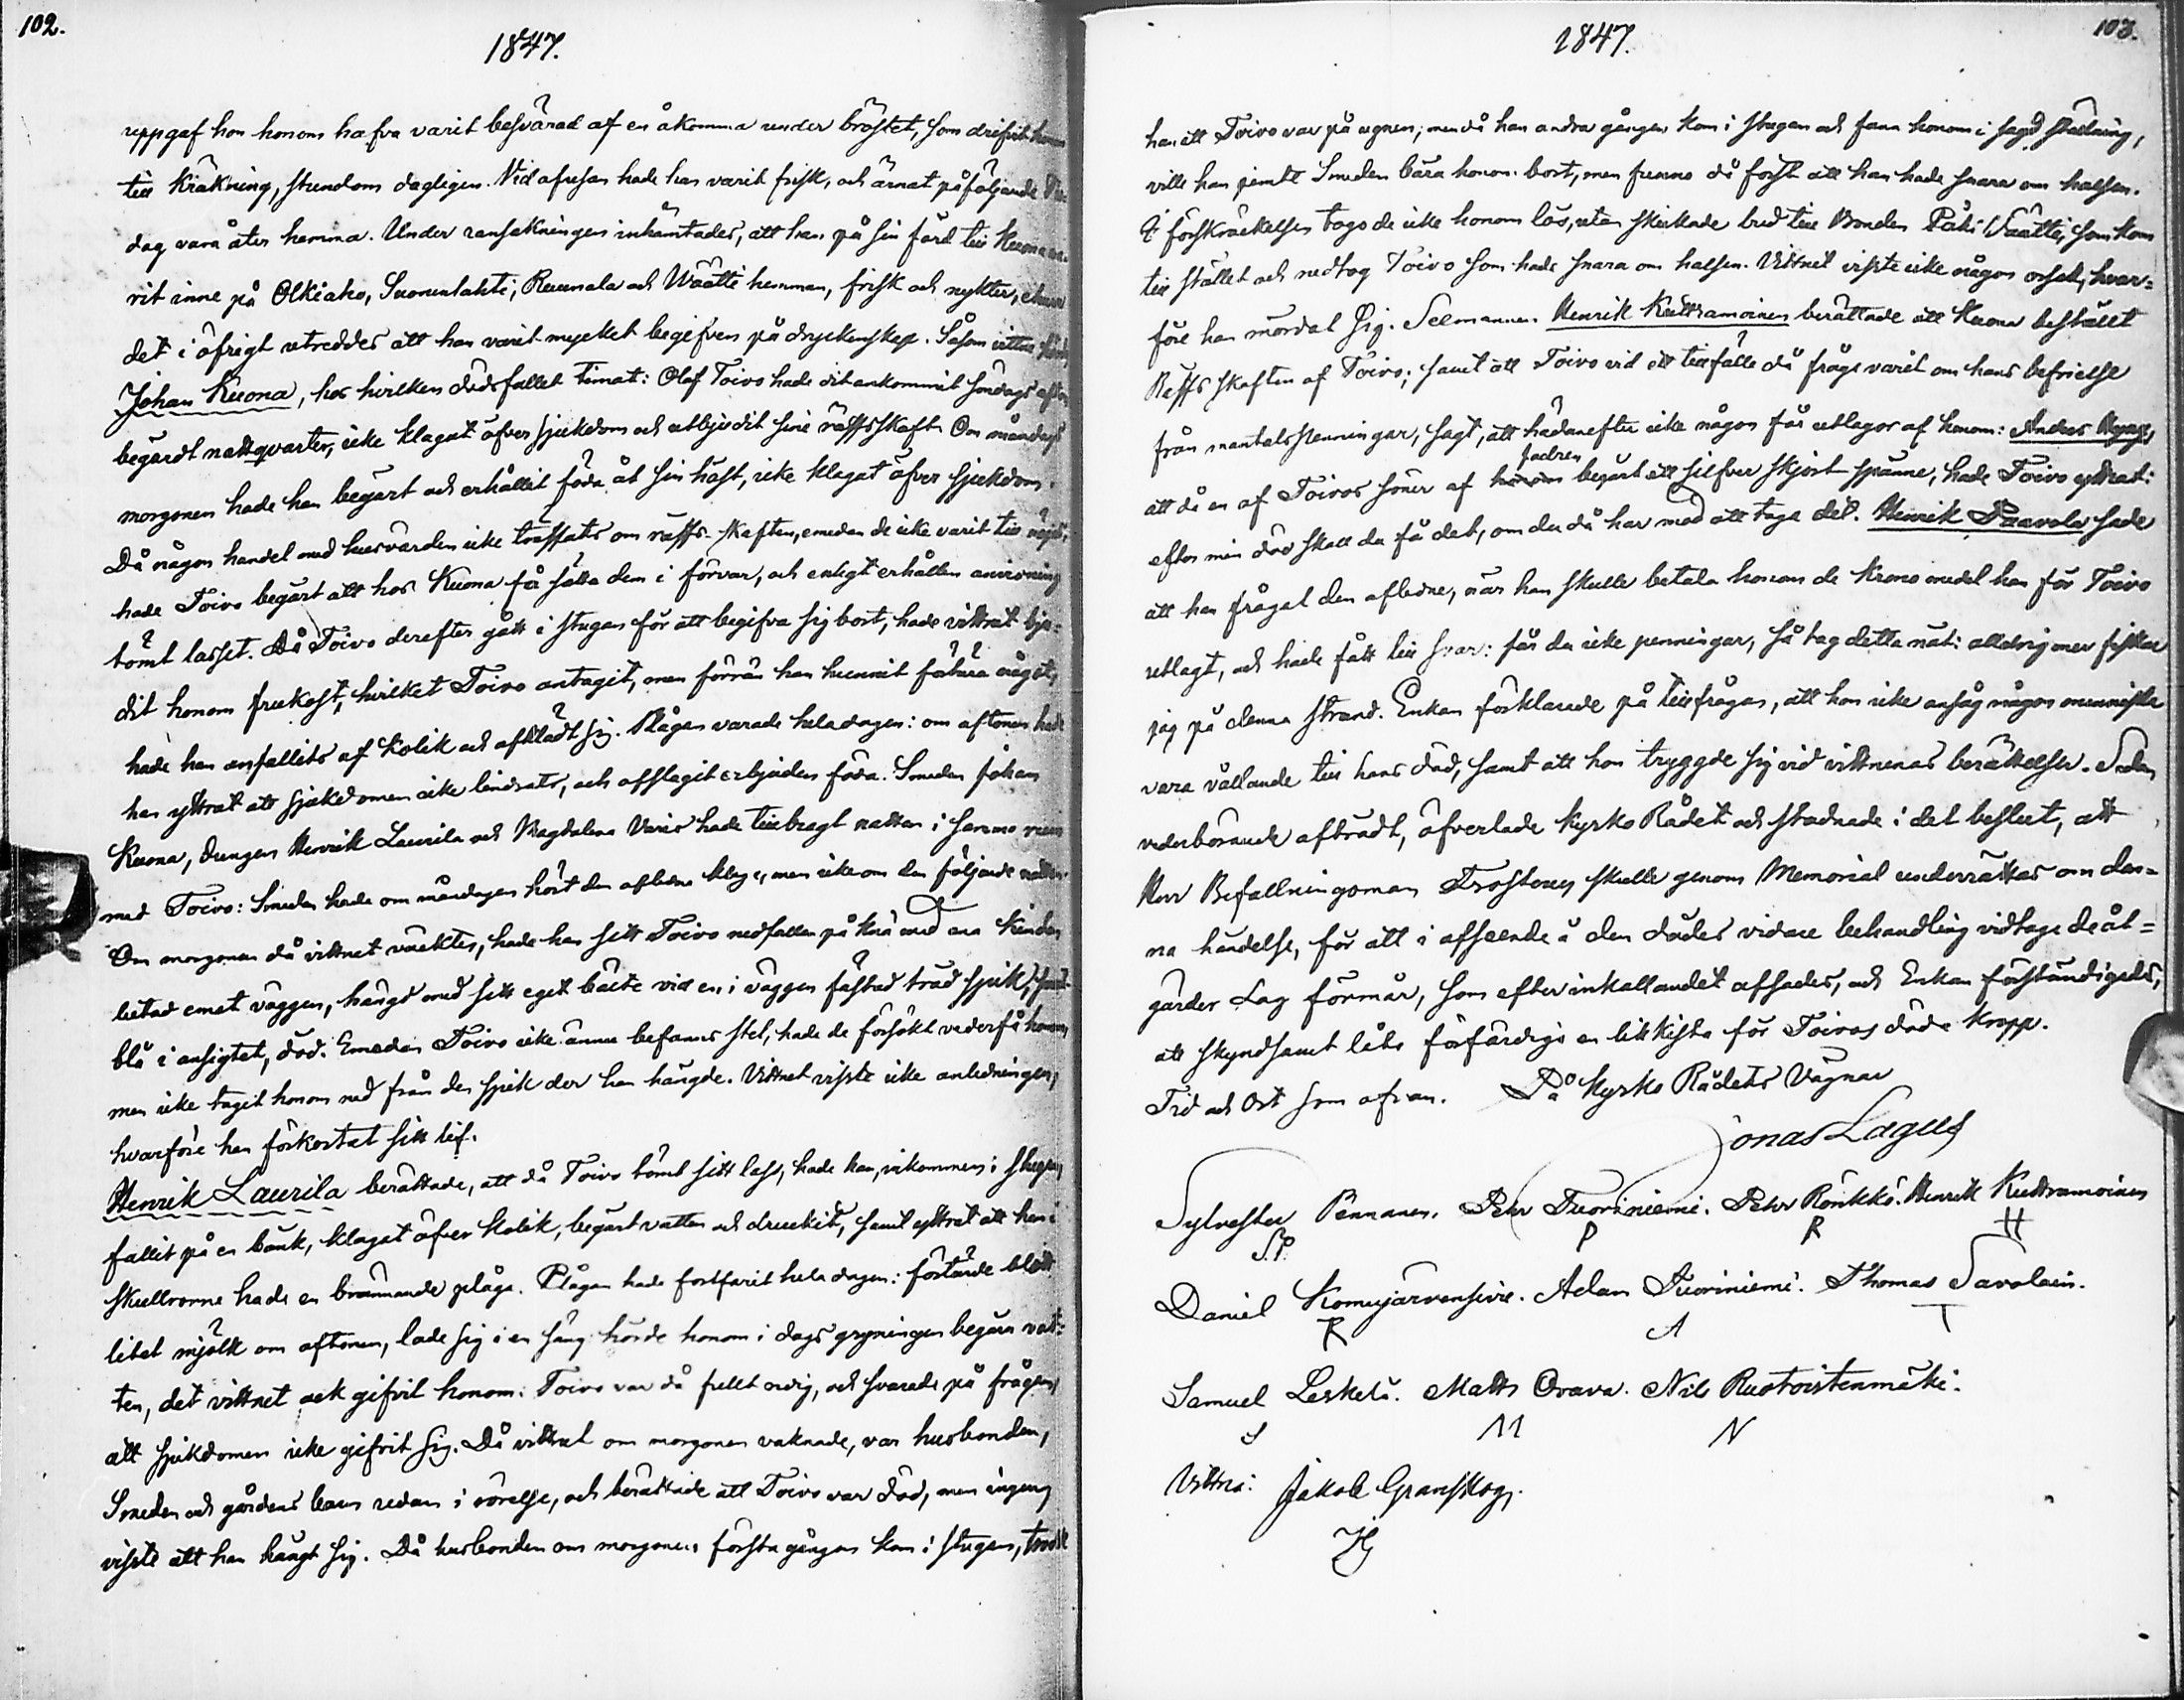 102.
1847.
uppgaf hon honom hafva varit besvärad af en åkomma under bröstet, som drifvit honom
till kräkning, stundom dagligen. Vid afresan hade han varit frisk, och ärnat påföljande
dag vara åter hemma. Under ransakningen inhämtades, att han på sin färd till Kuona va-
rit inne på Olkiaho, Suonenlahti, Ruumala och Wäätti hemman, frisk och nykter, ehuru
det i öfrigt utreddes att han varit mycket begifven på dryckenskap. Såsom vittne
Johan Kuona, hos hvilken dödsfallet timat: Olof Toivo hade dit ankommit söndags afton,
begärdt nattqvarter, icke klagat öfver sjukdom och utbjudit sine räffsskaft. Om måndags
morgonen hade han begärt och erhållit föda åt sin häst, icke klagat öfver sjukdom.
Då någon handel med husvärden icke träffats om räffs-skaften, emedan de icke varit till nöjes,
hade Toivo begärt att hos Kuona få sätta dem i förvar, och enligt erhållen anvisning
tömt lasset. Då Toivo derefter gått i stugan för att begifva sig bort, hade vittnet bju-
dit honom frukost, hvilket Toivo antagit, men förrän han hunnit förtära något,
hade han anfallits af kolik och afklädt sig. Plågan varade hela dagen: om aftonen hade
han yttrat att sjukdomen icke lindrats, och afslagit erbjuden föda. Smeden Johan
Kuona, drengen Henrik Laurila och Magdalena Varis hade tillbragt natten i samma rum
med Toivo: Smeden hade om måndagen hört den aflidne klaga, men icke om den följande natten.
Om morgonen då vittnet väcktes, hade han sett Toivo nedfallen på knä med ena kinden
lutad emot väggen, hängd med sitt eget bälte vid en i väggen fästad träd spik, samt
blå i ansigtet, död. Emedan Toivo icke ännu befanns stel, hade de försökt vederfå honom,
men icke tagit honom ned från den spik der han hängde. Vittnet visste icke anledningen,
hvarföre han förkortat sitt lif.
Henrik Laurila berättade, att då Toivo tömt sitt lass, hade han, inkommen i stugan,
fallit på en bänk, klagat öfver kolik, begärt vatten och druckit, samt yttrat att han i
skullrorne hade en brännande plåga. Plågan hade fortfarit hela dagen: förtärde blott
litet mjölk om aftonen, lade sig i en säng: hörde honom i dags gryningen begära vat-
ten, det vittnet ock gifvit honom: Toivo var då fullt redig, och svarade på frågan,
att sjukdomen icke gifvit sig. Då vittnet om morgonen vaknade, var husbonden,
Smeden och gårdens barn redan i rörelse, och berättade att Toivo var död, men ingen
visste att han hängt sig. Då husbonden om morgonen första gången kom i stugan, trodde
103.
1847.
han att Toivo var på ugnen; men då han andra gången kom i stugan och fann honom i sagd ställning,
ville han jemte Smeden bära honom bort, men funno då först att han hade snara om halsen.
I förskräckelsen togo de icke honom lös, utan skickade bud till Bonden Påhl Wäätti, som kom
till stället och nedtog Toivo som hade snara om halsen. Vittnet visste icke någon orsak, hvar-
före han mördat sig. Sexmannen Henrik Kuttramoinen berättade att Kuona beställt
Reffs skaften af Toivo; samt att Toivo vid ett tillfälle då fråga varit om hans befrielse
från mantalspenningar, sagt, att hädanefter icke någon får utlagor af honom: Anders
att då en af Toivos söner af fadren begärt ett silfver skjort spänne, hade Toivo yttrat:
efter min död skall du få det, om du då har mod att taga det. Henrik Paavola sade
att han frågat den aflidne, när han skulle betala honom de Krono medel han för Toivo
utlagt, och hade fått till svar: får du icke penningar, så tag detta nät: alldrig mer fiskar
jag på denna strand. Enkan förklarade på tillfrågan, att hon icke ansåg någon menniska
vara vållande till hans död, samt att hon tryggde sig vid vittnenas berättelser. Sedan
vederbörande afträdt, öfverlade Kyrko Rådet och stadnade i det beslut, att
Herr Befallningsman Frosterus skulle genom Memorial underrättas om den-
na händelse, för att i afseende å den dödes vidare behandling vidtaga de åt-
gärder Lag förmår, som efter inkallandet afsades, och Enkan förständigades,
att skyndsamt låta förfärdiga en likkista för Toivos döda kropp.
Tid och Ort som ofvan. På Kyrko Rådets Vägnar
Jonas Lagus
Sylvester Pennanen. Pehr Tuoriniemi. Pehr Rönkkö. Henrik Kuttramoinen
S.P. P R H
Daniel Komujärvensivu. Adam Tuoriniemi. Thomas Savolain.
K A T
Samuel Leskelä. Matts Orava. Nils Ruotoistenmäki.
S M N
Vittne: Jakob Granskog.
JG